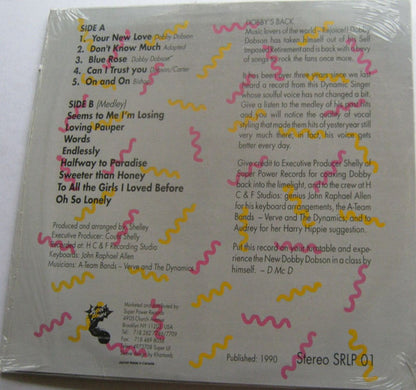 SIDE A
1. Your New Love Dobby Dobson
2. Don't Know Much Adapted
3. Blue Rose Dobby Dobson
4. Can I Trust you /Carter
5. On and On
SIDE B (Medley)
Seems to Me I'm Losing
Loving Pauper
Words
Endlessly
Halfway to Paradise
Sweeter than Honey
To All the Girls I Loved Before
Oh So Lonely
Produced and arranged by Shelley
Executive Producer: Court Shelly
at H C & F Recording Studio
Keyboards: John Raphael Allen
Musicians: A-Team Bands – Verve and The Dynamics
Marketed and distributed by
Super Power Records
4905 Church
Brooklyn NY 11203 USA
Tel: 718 282 /7709
Fax: 718 469
Super UI
by Khartomb
Published: 1990
Stereo SRLP 01
DOBBY'S BACK
Music lovers of the world – Rejoice! Dobby
Dobson has taken himself out of his Self
Imposed retirement and is back with a bevy
of songs to rock the fans once more.
It has been over three years since we last
had a record from this Dynamic Singer
whose soulful voice has not changed a bit.
Give a listen to the medley of his past hits
and you will notice the quality of vocal
styling that made them hits of yesteryear still
very much there, in fact, his voice gets
better every day.
Give credit to Executive Producer Shelly of
Super Power Records for coaxing Dobby
back into the limelight, and to the crew at H
C & F Studios: genius John Raphael Allen
for his keyboard arrangements, the A-Team
Bands – Verve and The Dynamics, and to
Audrey for her Harry Hippie suggestion.
Put this record on your turntable and exper-
ience the New Dobby Dobson in a class by
himself. – D Mc D